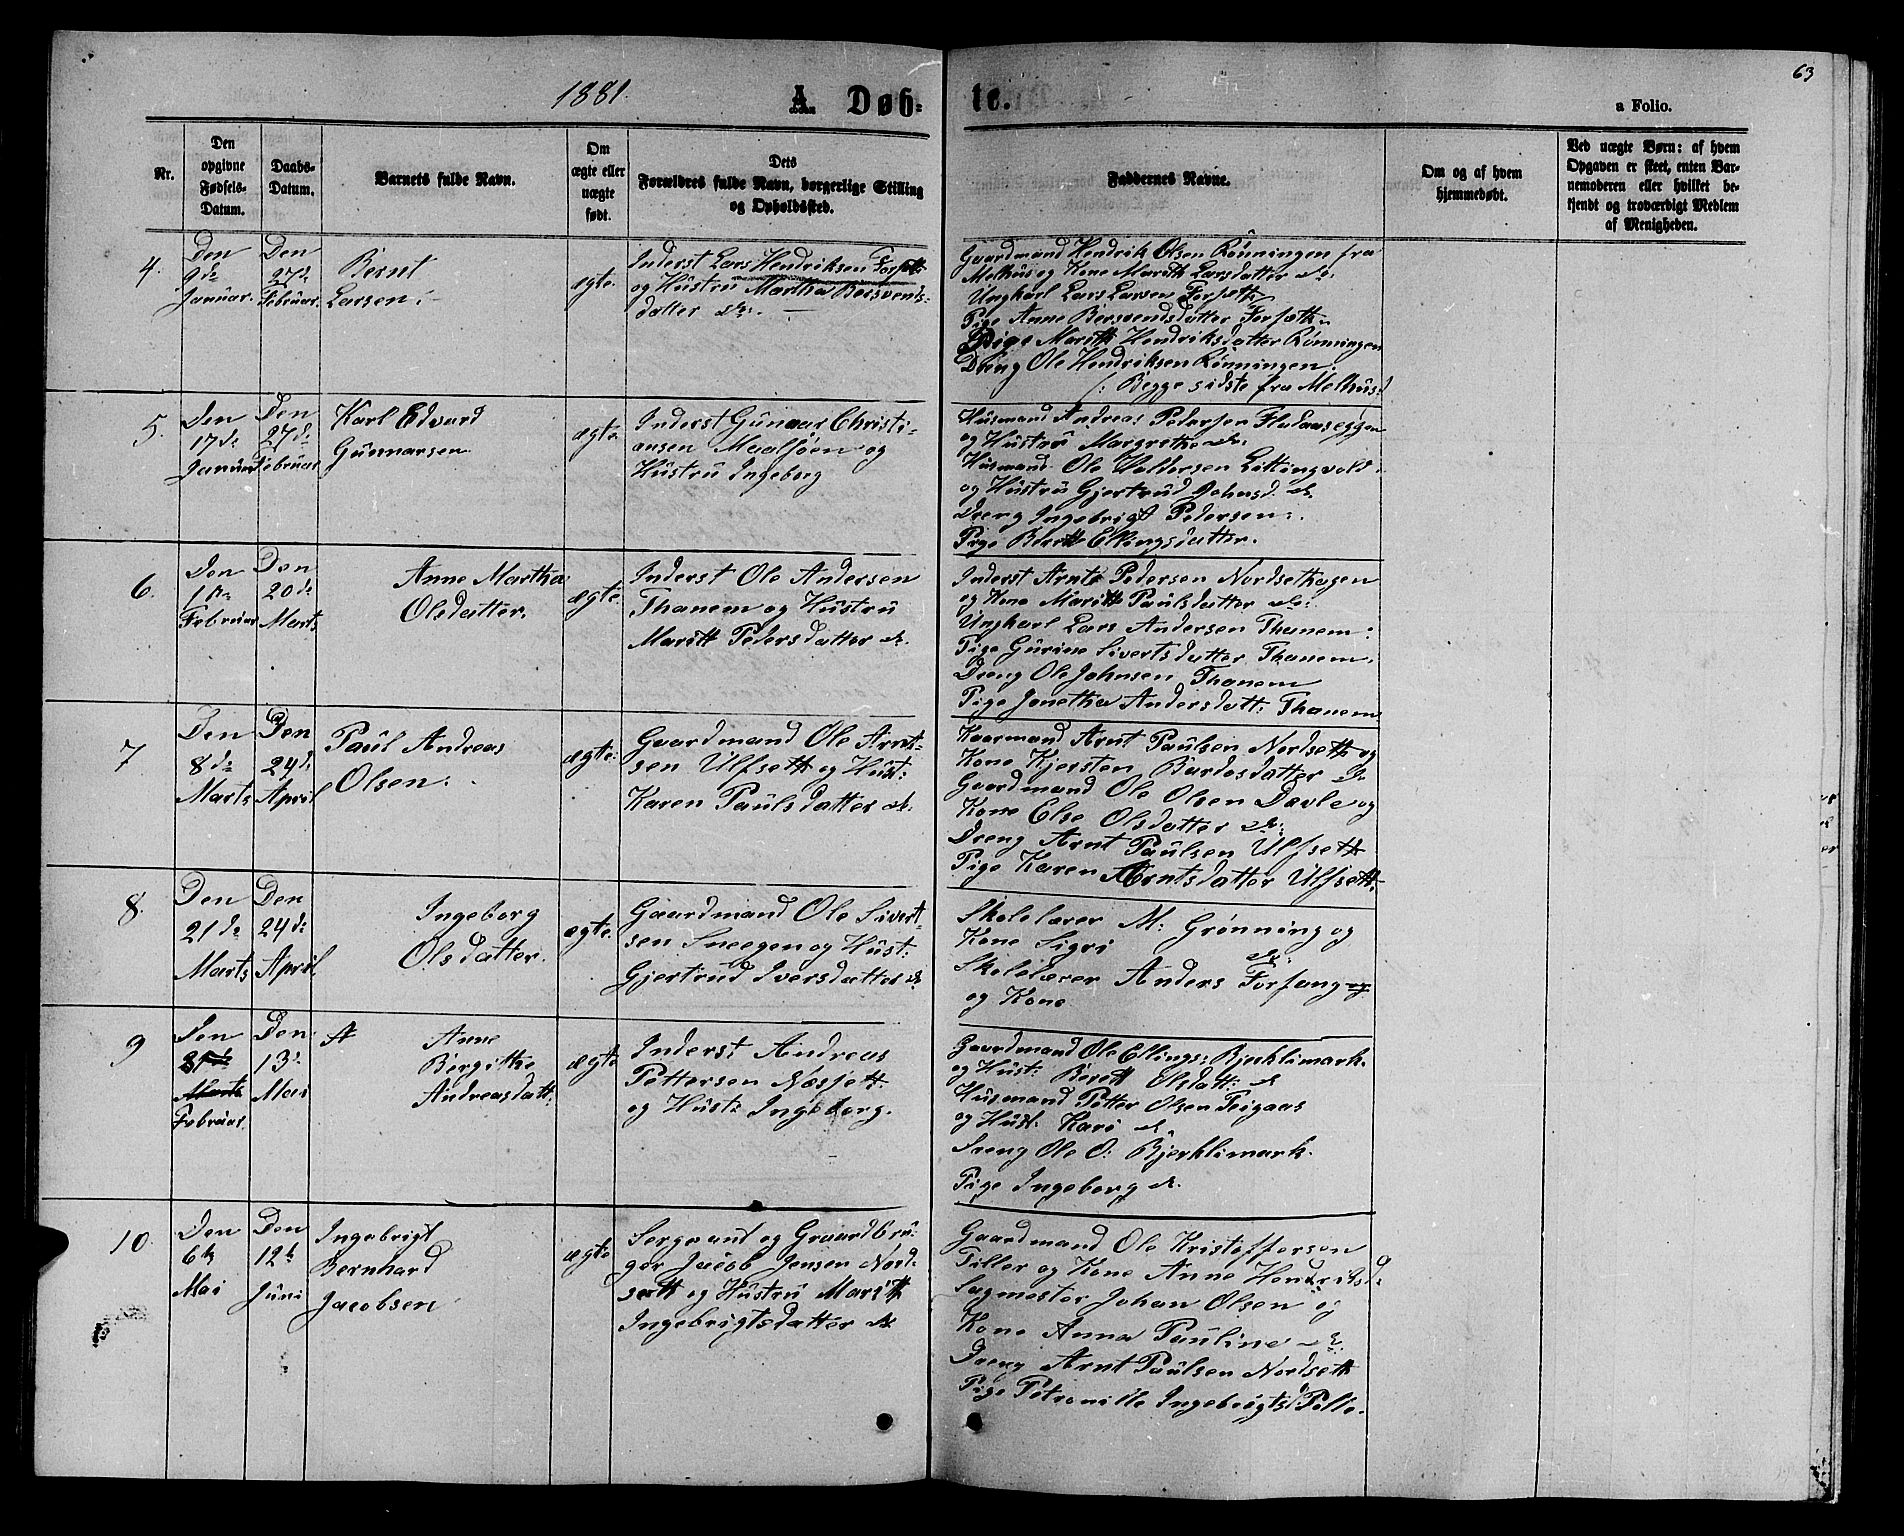 63
1881. A. Døb- te.
a Folio.
Nr.
Den opgivne Fødsels-Datum.
Daabs-Datum.
Barnets fulde Navn.
Om ægte eller uægte født.
Dets Forældres fulde Navn, borgerlige Stilling og Opholdssted.
Faddernes Navne.
Om og af hvem hjemmedøbt.
Ved uægte Børn: af hvem Opgaven er skeet, enten Barnemoderen eller hvilket bekjendt og troværdigt Medlem af Menigheden.
4.
Den
9de
Januar.
Den
27de
Februar.
Bernt
Larsen.
ægte.
Inderst Lars Hendriksen Forseth
og Hustru Martha Bersvends-
datter do.
Gaardmand Hendrik Olsen Rønningen fra
Melhus og Kone Marith Larsdatter do.
Ungkarl Lars Larsen Forseth
Pige Anne Bersvendsdatter Forsæth
Pige Marith Hendriksdatter Rønningen
Dreng Ole Hendriksen Rønningen.
/: Begge sidste fra Melhus:/
5.
Den
17de
Januar
Den
27de
Februar
Karl Edvard
Gunnarsen
ægte.
Inderst Gunnar Christi-
ansen Maalsjøen og
Hustru Ingeborg
Husmand Andreas Pedersen Fladaaseggen
og Hustru Margrethe do.
Husmand Ole Haldorsen Littingvold
og Hustru Gjertrud Johnsd. do.
Dreng Ingebrigt Pedersen.
Pige Beret Ellingsdatter.
6.
Den
1ste
Februar
Den
20de
Marts
Anne Martha
Olsdatter.
ægte.
Inderst Ole Andersen
Thanem og Hustru
Maritt Pedersdatter do.
Inderst Arnt Pedersen Nordsethagen
og Kone Maritt Paulsdatter do.
Ungkarl Lars Andersen Thanem.
Pige Gurine Sivertsdatter Thanem.
Dreng Ole Johnsen Thanem
Pige Jonetha Andersdatt: Thanem
7
Den
8de
Marts
Den
24de
April
Paul Andreas
Olsen.
ægte.
Gaardmand Ole Arnt-
sen Ulfsett og Hust:
Karen Paulsdatter do.
Kaarmand Arnt Paulsen Nordsett og
Kone Kjersten Bardosdatter do.
Gaardmand Ole Olsen Davle og
Kone Else Olsdatter do.
Dreng Arnt Paulsen Ulfsett
Pige Karen Arntsdatter Ulfsett.
8.
Den
21de
Marts
Den
24de
April
Ingeborg
Olsdatter.
ægte.
Gaardmand Ole Sivert-
sen Sneegen og Hust:
Gjertrud Iversdatter do
Skolelærer M: Grønning og
Kone Sigri do.
Skolelærer Anders Forfang
og Kone
9
Den
21de
Marts
Februar.
Den
13de
Mai
A
Anne
Bergitte
Andreasdatt.
ægte
Inderst Andreas
Pettersen Næssett
og Hust: Ingeborg.
Gaardmand Ole Ellings: Bjerklimark.
og Hust: Berett Olsdatt: do
Husmand Petter Olsen Teigaas
og Hust. Kari do.
Dreng Ole O: Bjerklimark.
Pige Ingeborg do.
10.
Den
6te
Mai
Den
12te
Juni
Ingebrigt
Bernhard
Jacobsen
ægte
Sergeant og Gaardbru-
ger Jacob Jensen Nord-
sett og Hustru Maritt
Ingebrigtsdatter do
Gaardmand Ole Kristoffersen
Tiller og Kone Anne Hendriksd:
Sagmester Johan Olsen og
Kone Anna Pauline do.
Dreng Arnt Paulsen Nordsett
Pige Petronille Ingebrigtsd Tille.